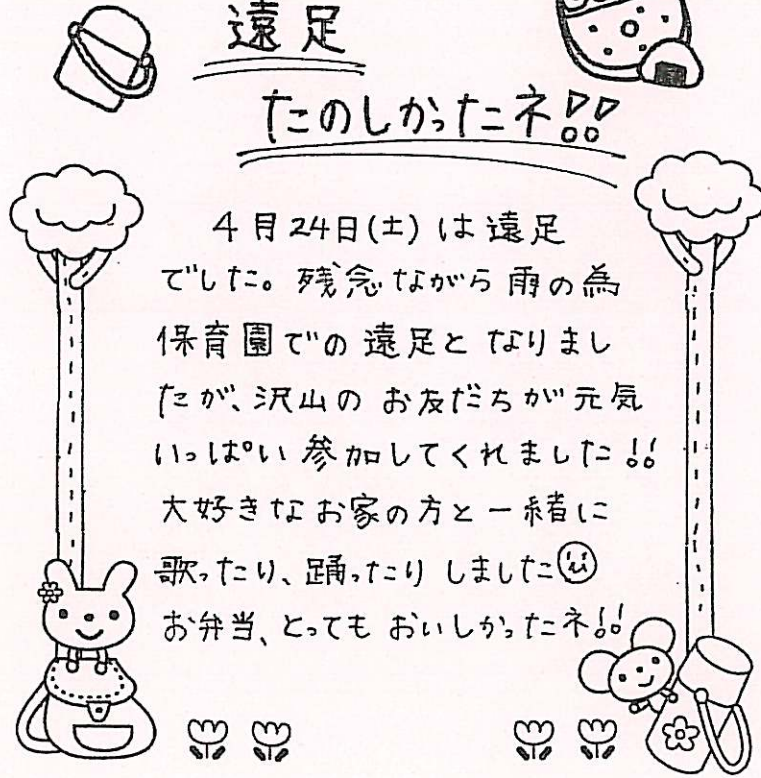 遠足
たのしかったネ!!
4月24日(土)は遠足
でした。残念ながら雨の為
保育園での遠足となりまし
たが、沢山のお友だちが元気
いっぱい参加してくれました!!
大好きなお家の方と一緒に
歌ったり、踊ったりしました
お弁当、とってもおいしかったネ!!